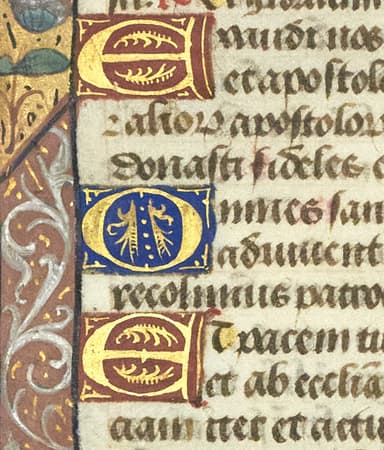 Exaudi nos
et apostol
⁊ alioꝝ apostoloꝝ
donasti fideles e
Omnes san
adiuuent
recolimus patro
Et pacem tu
et ab ecclia
ciam iter et actu